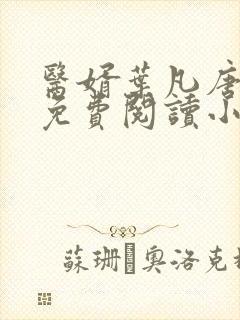 醫婿葉凡唐
免費閱讀小
蘇珊·奧洛克